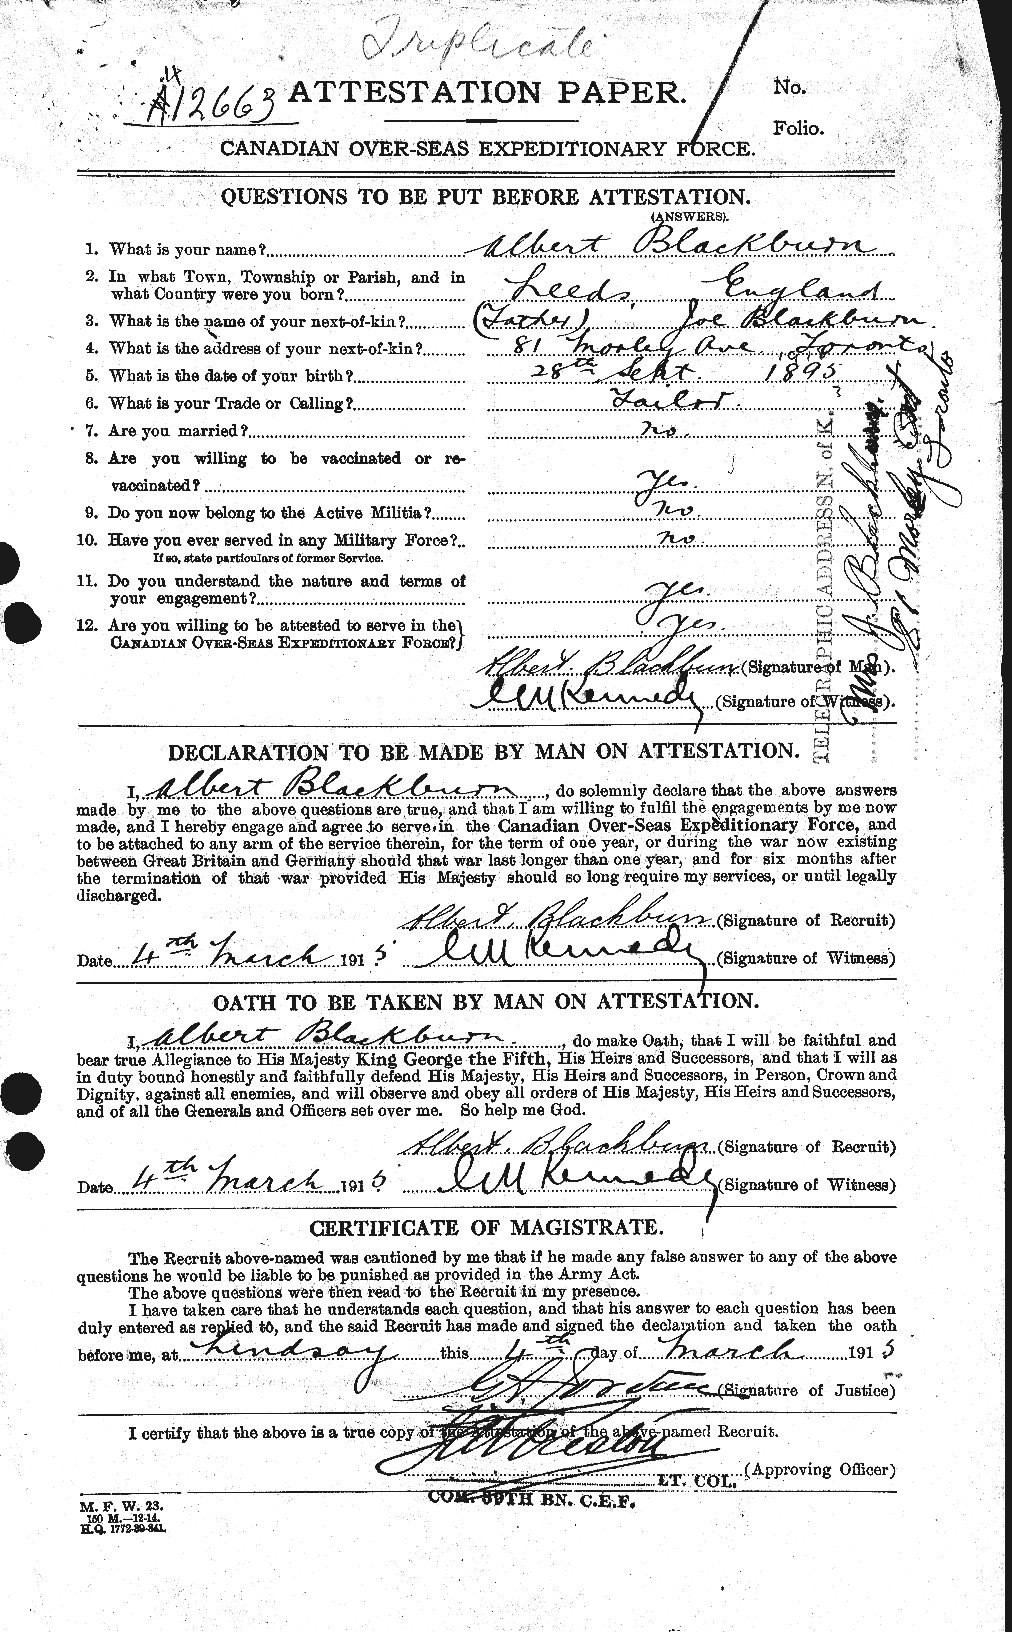 Triplicate
A12663
ATTESTATION PAPER.
No.
Folio.
CANADIAN OVER-SEAS EXPEDITIONARY FORCE.
QUESTIONS TO BE PUT BEFORE ATTESTATION.
(ANSWERS).
1. What is your name? Albert Blackburn
2. In what Town, Township or Parish, and in
what Country were you born? Leeds, England
3. What is the name of your next-of-kin? (Father) Joe Blackburn.
4. What is the address of your next-of-kin? 81 Morley Ave. Toronto
5. What is the date of your birth? 28th Sept. 1895
6. What is your Trade or Calling? Tailor.
7. Are you married? no.
8. Are you willing to be vaccinated or re-
vaccinated? Yes.
9. Do you now belong to the Active Militia? no.
10. Have you ever served in any Military Force? no.
If so, state particulars of former Service.
11. Do you understand the nature and terms of
your engagement? Yes.
12. Are you willing to be attested to serve in the
CANADIAN OVER-SEAS EXPEDITIONARY FORCE? Yes.
Albert. Blackburn (Signature of Man).
C M Kennedy (Signature of Witness).
TELEGRAPHIC ADDRESS N. of K.
(Mrs J. Blackburn.
81 Morley
Toronto
DECLARATION TO BE MADE BY MAN ON ATTESTATION.
I, Albert Blackburn, do solemnly declare that the above answers
made by me to the above questions are true, and that I am willing to fulfil the engagements by me now
made, and I hereby engage and agree to serve in the Canadian Over-Seas Expeditionary Force, and
to be attached to any arm of the service therein, for the term of one year, or during the war now existing
between Great Britain and Germany should that war last longer than one year, and for six months after
the termination of that war provided His Majesty should so long require my services, or until legally
discharged.
Albert. Blackburn (Signature of Recruit)
Date 4th March 1915 C M Kennedy (Signature of Witness)
OATH TO BE TAKEN BY MAN ON ATTESTATION.
I, Albert Blackburn., do make Oath, that I will be faithful and
bear true Allegiance to His Majesty King George the Fifth, His Heirs and Successors, and that I will as
in duty bound honestly and faithfully defend His Majesty, His Heirs and Successors, in Person, Crown and
Dignity, against all enemies, and will observe and obey all orders of His Majesty, His Heirs and Successors,
and of all the Generals and Officers set over me. So help me God.
Albert. Blackburn (Signature of Recruit)
Date 4th March 1915 C M Kennedy (Signature of Witness)
CERTIFICATE OF MAGISTRATE.
The Recruit above-named was cautioned by me that if he made any false answer to any of the above
questions he would be liable to be punished as provided in the Army Act.
The above questions were then read to the Recruit in my presence.
I have taken care that he understands each question, and that his answer to each question has been
duly entered as replied to, and the said Recruit has made and signed the declaration and taken the oath
before me, at Lindsay this 4th day of March 1915
(Signature of Justice)
I certify that the above is a true copy of the Attestation of the above-named Recruit.
Preston
(Approving Officer)
LT. COL.
COM. 39TH BN. C.E.F.
M. F. W. 23.
150 M.—12-14.
H.Q. 1772-39-841.